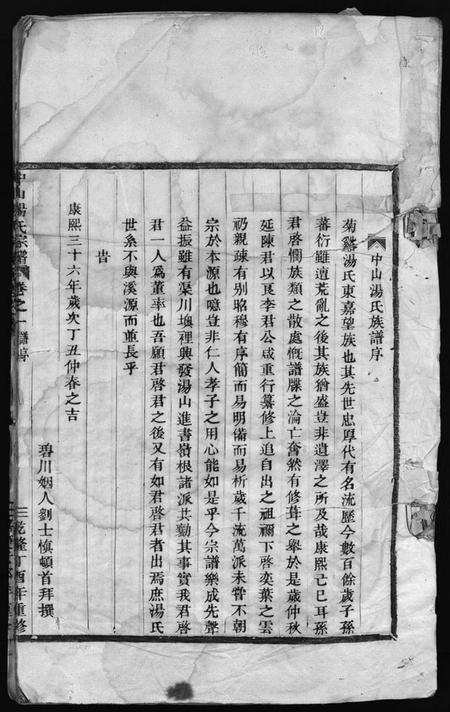 中山湯氏族譜序
菊谿湯氏東嘉望族也其先世忠厚代有名流歷今數百餘歲子孫
蕃衍雖遭荒亂之後其族猶盛豈非遺澤之所及哉康熙己巳耳孫
君啓憫族類之散處慨譜牒之淪亡奮然有修葺之舉於是歲仲秋
延陳君以良李君公咸重行纂修上追自出之祖禰下啓奕葉之雲
礽親疎有別昭穆有序簡而易明備而易析歲千流萬派未嘗不朝
宗於本源也噫豈非仁人孝子之用心能如是乎今宗譜樂成先聲
益振雖有渠川墺裡興發湯山進書嶺根諸派共勷其事實我君啓
君一人爲董率也吾願君啓君之後又有如君啓君者出焉庶湯氏
世系不與溪源而並長乎
旹
康熙三十六年歲次丁丑仲春之吉
碧川姻人劉士慎頓首拜撰
中山湯氏宗譜 卷之一 譜序
乾隆丁酉年重修